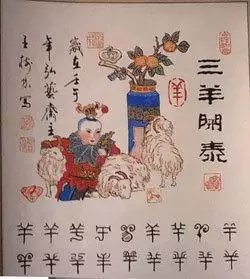 三羊開泰
羊
歲在壬午
年弘藝齋主
王樹
羊羊羊羊羊羊羊羊羊
羊羊羊羊羊羊羊羊羊